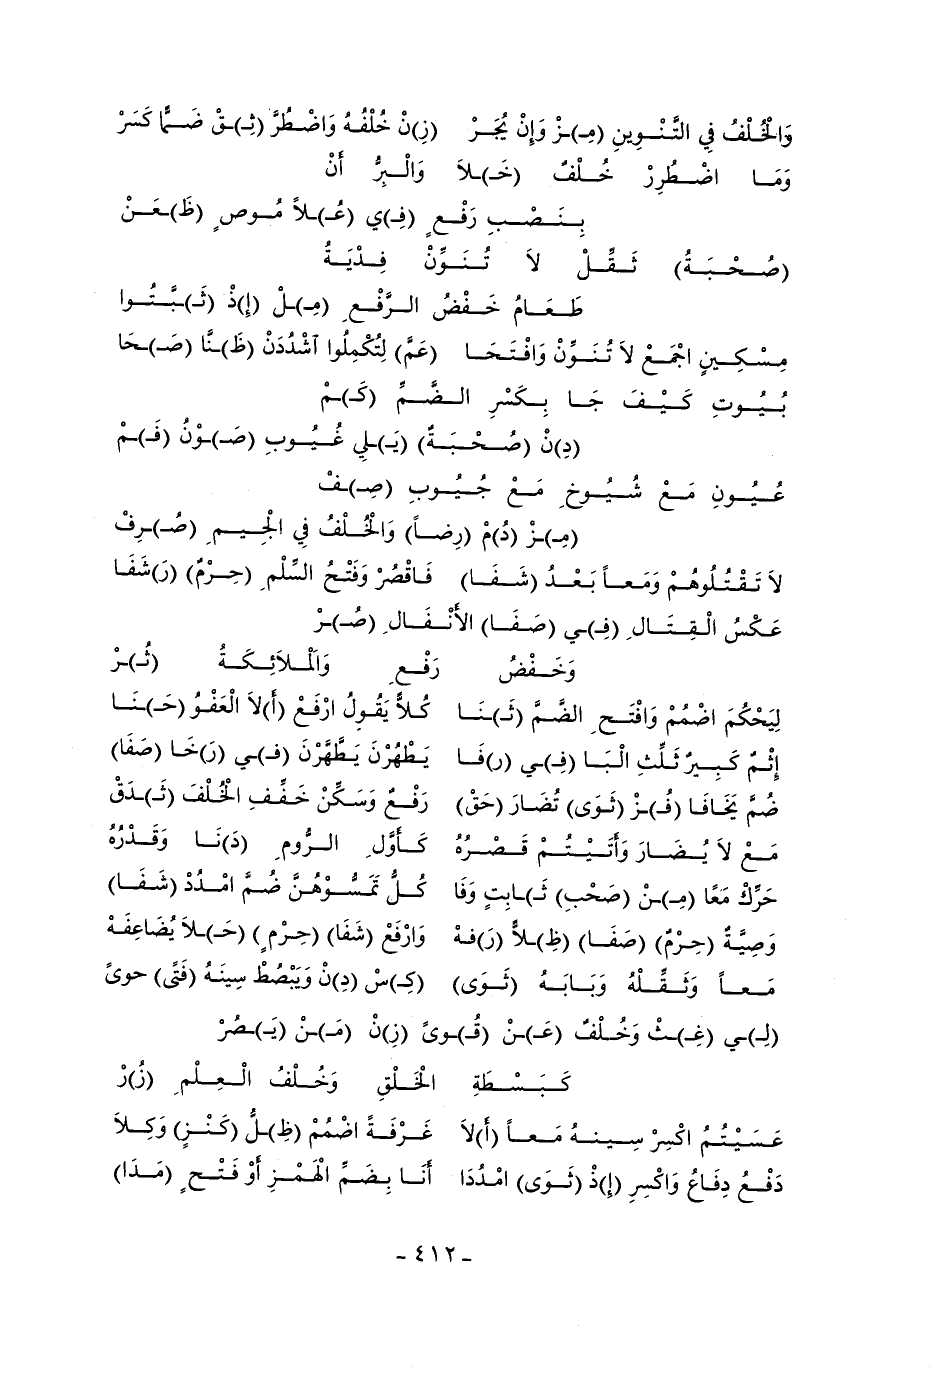 وَالْخُلْفُ فِي التَّنْوِينِ (مِـ)ـزْ وَإِنْ يُجَرْ (زِ)نْ خُلْفُهُ وَاضْطُرَّ (ثِـ)ـقْ ضَمًّا كَسَرْ
وَمَا اضْطُرِرْ خُلْفٌ (خَـ)ـلاَ وَالْبِرُّ أَنْ
بِنَصْبِ رَفْعٍ (فِـ)ي (عُـ)ـلاً مُوصٍ (ظَـ)ـعَنْ
(صُحْبَةٌ) ثَقِّلْ لاَ تُنَوِّنْ فِدْيَةُ
طَعَامُ خَفْضُ الرَّفْعِ (مِـ)ـلْ (إِ)ذْ (ثَـ)ـبَّتُوا
مِسْكِينِ اجْمَعْ لاَ تُنَوِّنْ وَافْتَحَا (عَمَّ) لِتُكْمِلُوا اشْدُدَنْ (ظَـ)ـنًّا (صَـ)ـحَا
بُيُوتِ كَيْفَ جَا بِكَسْرِ الضَّمِّ (كَـ)ـمْ
(دِ)نْ (صُحْبَةٌ) (بَـ)ـلَى غُيُوبِ (صَـ)ـوْنُ (فَـ)ـمْ
عُيُونِ مَعْ شُيُوخِ مَعْ جُيُوبِ (صِـ)ـفْ
(مِـ)ـزْ (دُ)مْ (رِضاً) وَالْخُلْفُ فِي الْجِيمِ (صُـ)ـرِفْ
لاَ تَقْتُلُوهُمْ وَمَعاً بَعْدُ (شَفَا) فَاقْصُرْ وَفَتْحُ السِّلْمِ (حِرْمٌ) (رَ)شَفَا
عَكْسُ الْقِتَالِ (فِـ)ـي (صَفَا) الأَنْفَالِ (صُـ)ـرْ
وَخَفْضُ رَفْعِ وَالْمَلاَئِكَةُ (ثُـ)ـرْ
لِيَحْكُمَ اضْمُمْ وَافْتَحِ الضَّمَّ (ثَـ)ـنَا كُلاًّ يَقُولُ ارْفَعْ (أَ)لاَ الْعَفْوُ (حَـ)ـنَا
إِثْمٌ كَبِيرٌ ثَلِّثِ الْبَا (فِـ)ـي (رَ)فَا يَطْهُرْنَ يَطَّهَّرْنَ (فِـ)ـي (رَ)خَا (صَفَا)
ضُمَّ يَخَافَا (فُـ)ـزْ (ثَوَى) تُضَارَ (حَقْ) رَفْعٌ وَسَكِّنْ خَفِّفِ الْخُلْفَ (ثَـ)ـدَقْ
مَعْ لاَ يُضَارَ وَأَتَيْتُمْ قَصْرُهُ كَأَوَّلِ الرُّومِ (دَ)نَا وَقَدْرُهُ
حَرِّكْ مَعًا (مِـ)ـنْ (صَحْبِ) ثَـ)ـابِتٍ وَفَا كُلَّ تَمَسُّوهُنَّ ضُمَّ امْدُدْ (شَفَا)
وَصِيَّةٌ (حِرْمٌ) (صَفَا) (ظِـ)ـلاًّ (رَ)فَهْ وَارْفَعْ (شَفَا) (حِرْمٍ) (حَـ)ـلاَ يُضَاعِفَهْ
مَعاً وَثَقِّلْهُ وَبَابَهُ (ثَوَى) (كِـ)ـسْ (دِ)نْ وَيَبْصُطُ سِينُهُ (فَتًى) حَوَى
(لِـ)ي (غِـ)ـثْ وَخُلْفٌ (عَـ)ـنْ (قُـ)ـوَى (زِ)نْ (مَـ)ـنْ (يَـ)ـصُرْ
كَبَسْطَةِ الْخَلْقِ وَخُلْفُ الْعِلْمِ (زُ)رْ
عَسَيْتُمُ اكْسِرْ سِينَهُ مَعاً (أَ)لاَ غَرْفَةً اضْمُمْ (ظِـ)ـلُّ (كَنْزٍ) وَكِلاَ
دَفْعُ دِفَاعُ وَاكْسِرِ (إِ)ذْ (ثَوَى) امْدُدَا أَنَا بِضَمِّ الْهَمْزِ أَوْ فَتْحٍ (مَدَا)
ـ ٤١٢ ـ